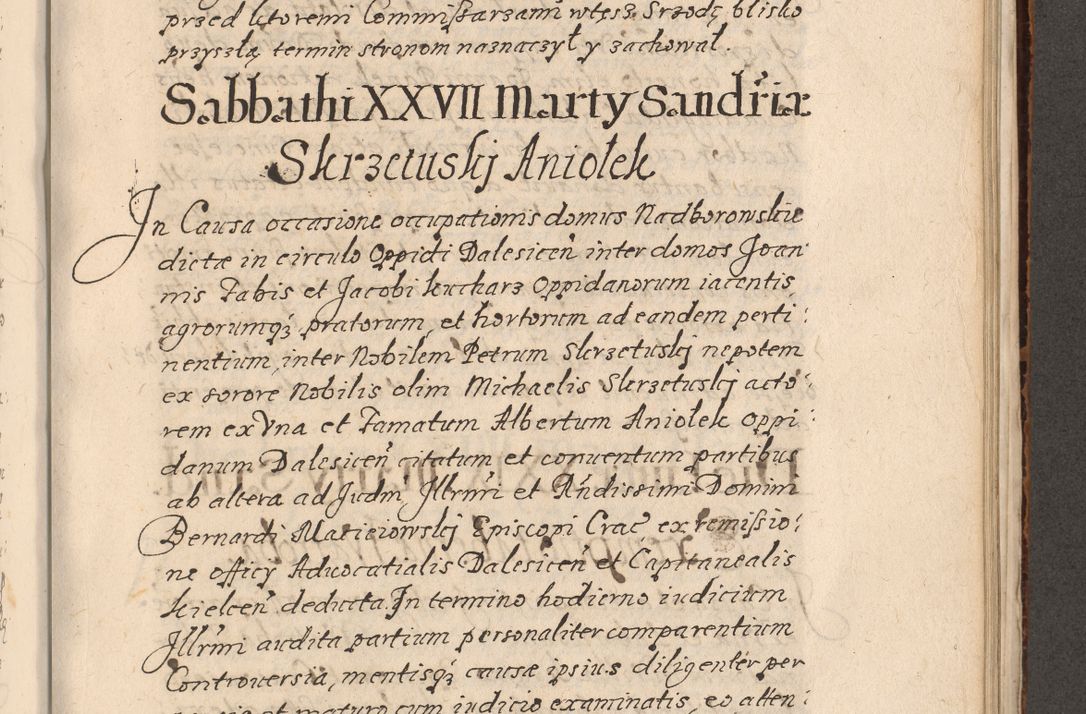 przed ktoremi Commißarzami wtęsz Srzodę blisko
przyszłą termin stronom naznaczył y zachował.
Sabbathi XXVII Marty Sandr̃iæ
Skrzetuskj Aniołek
In Causa occasione occupationis domus Nadborowskie
dictæ in circulo Oppidi Dalesiceñ inter domos Joan
nis Fabis et Jacobi kucharz Oppidanorum iacentis
agrorumqꝫ pratorum, et hortorum ad eandem perti:
nentium, inter Nobilem Petrum Skrzetuskj nepotem
ex sorore Nobilis olim Michaelis Skrzetuskj acto:
rem ex Vna et Famatum Albertum Aniołek oppi:
danum Dalesiceñ citatum et conuentum partibus
ab altera ad Judm̃ Jllrmi et Rñdissimi Domini
Bernardi Macieiowskj Episcopi Crac̃ ex remißio:
ne officy Aduocatialis Dalesiceñ et Capitanealis
kielceñ deducta. Jn termino hodierno iudicium
Jllrmi audita partium personaliter comparentium
Controuersia, mentisqꝫ causæ ipsius diligenter per
et maturo cum iudicio examinatis, eo atten: